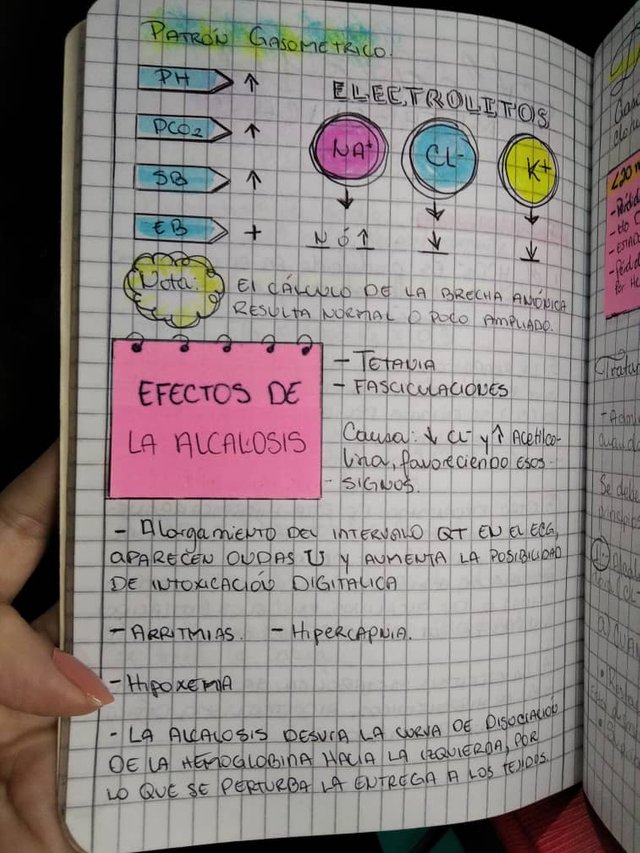 PATRÓN GASOMETRICO.
PH ↑
PCO₂ ↑
SB ↑
EB +
ELECTROLITOS
NA⁺
CL⁻
K⁺
↓
↓
↓
N Ó ↑
↓
↓
Nota:
El CÁLCULO DE LA BRECHA ANIÓNICA
RESULTA NORMAL O POCO AMPLIADO.
EFECTOS DE
LA ALCALOSIS
- TETANIA
- FASCICULACIONES
Causa: ↓ CL⁻ y ↑ Acetilco-
lina, favoreciendo esos
SIGNOS.
- Alargamiento DEL INTERVALO QT EN EL ECG,
APARECEN ONDAS U Y AUMENTA LA POSIBILIDAD
DE INTOXICACIÓN DIGITALICA
- ARRITMIAS. - HIPERCAPNIA.
- HIPOXEMIA
- LA ALCALOSIS DESVIA LA CURVA DE DISOCIACIÓN
DE LA HEMOGLOBINA HACIA LA IZQUIERDA, POR
LO QUE SE PERTURBA LA ENTREGA A LOS TEJIDOS.